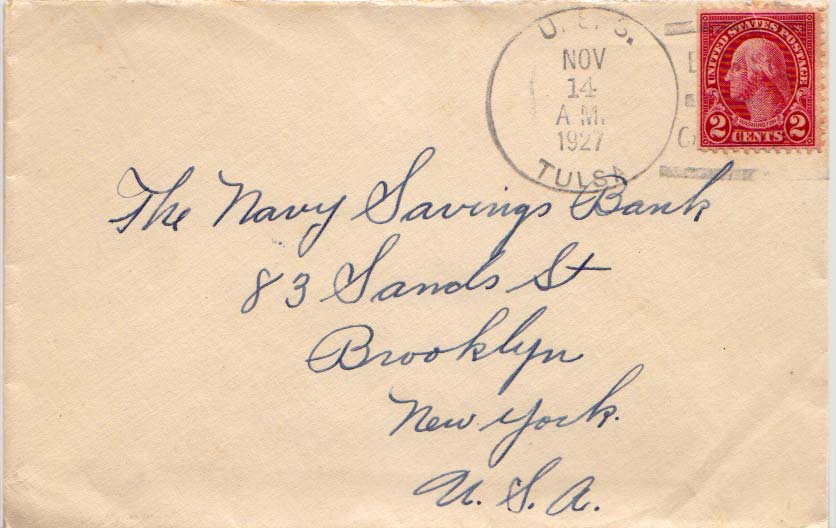 U. S. S.
NOV
14
A M.
1927
TULSA
UNITED STATES POSTAGE
WASHINGTON
2 CENTS 2
The Navy Savings Bank
83 Sands St
Brooklyn
New York.
U. S. A.